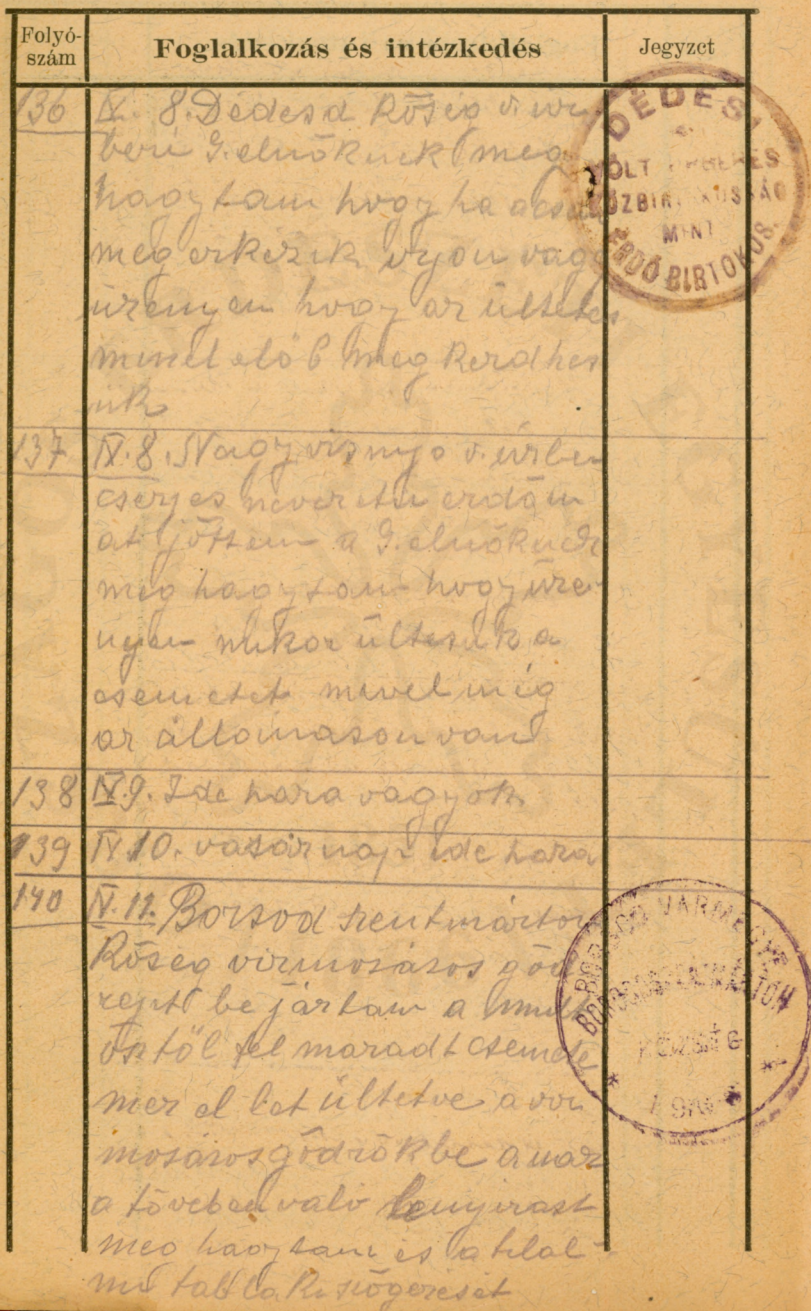 Folyó-
szám
Foglalkozás és intézkedés
Jegyzet
136 IV. 8. Dédesd Község v. úr
beri G. elnöknek meg
hagytam hogy ha a
meg erkezik vagy
üzenyen hogy az ültetes
minel előb meg kezdhes
ük
DÉDESI
VOLT ÚRBÉRES
KÖZBIRTOKOSSÁG
MINT
ERDŐBIRTOKOS.
137 IV. 8. Nagyvisnyo v. úrber
cserjes nevezetü erdőm
at jöttem a G. elnöknek
meg hagytam hogy üze
nyen mikor ültesük a
csemetet mivel míg
az állomason van
138 IV. 9. Ide haza vagyok
139 IV. 10. vasárnap ide haza
140 IV. 11. Borsod szentmárton
Község vizmosásos göd
reit be jártam a mult
östöl fel maradt csemete
mer el let ültetve a viz
mosásos gödrökbe
a tövebeen valo lenyirast
meg hagytam es a tilal
mi tablak ki szögezését
BORSOD VÁRMEGYE
BORSODSZENTMÁRTON
KÖZSÉG